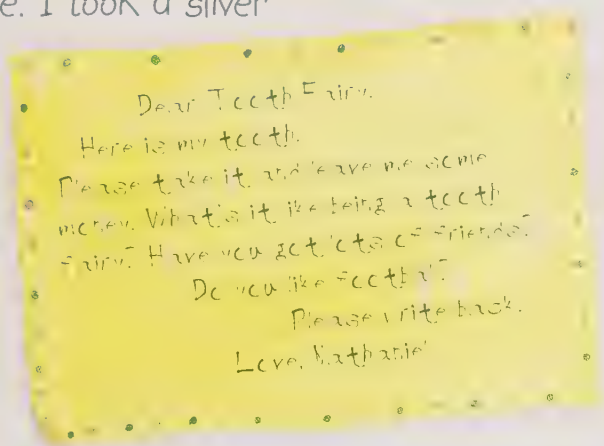 e. I took a silver
Dear Tooth Fairy.
Here is my tooth.
Please take it and leave me some
money. What is it like being a tooth
fairy? Have you got lots of friends?
Do you like football?
Please write back.
Love, Nathaniel